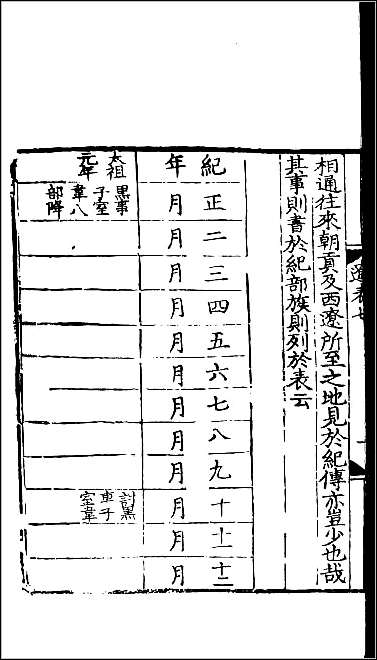 相通往來朝貢及西遼所至之地見於紀傳亦豈少也哉
其事則書於紀部族則列於表云
紀年
正月
二月
三月
四月
五月
六月
七月
八月
九月
十月
十一月
十二月
太祖
元年
黑車
子室
韋八
部降
討黑
車子
室韋